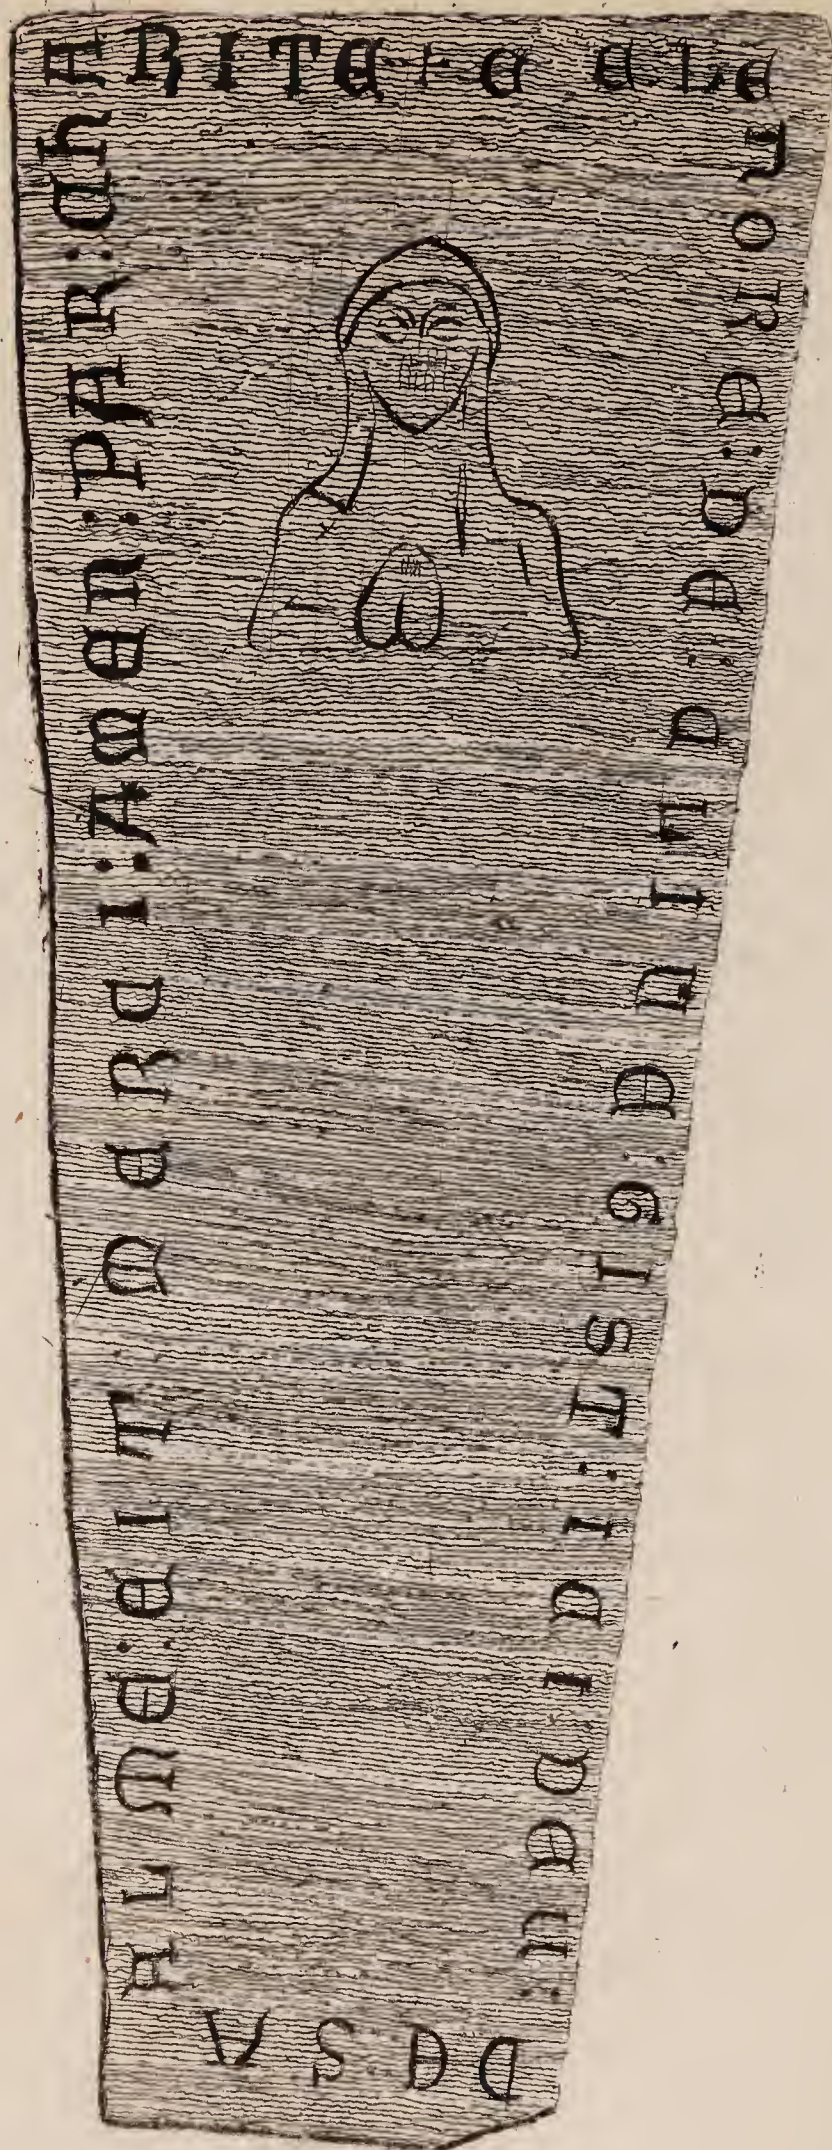 ARITE : E ELE
NORE : DE : GIST : ICI : DEU :
DE SA
ALME : EIT MERCI : AMEN : PAR : CH